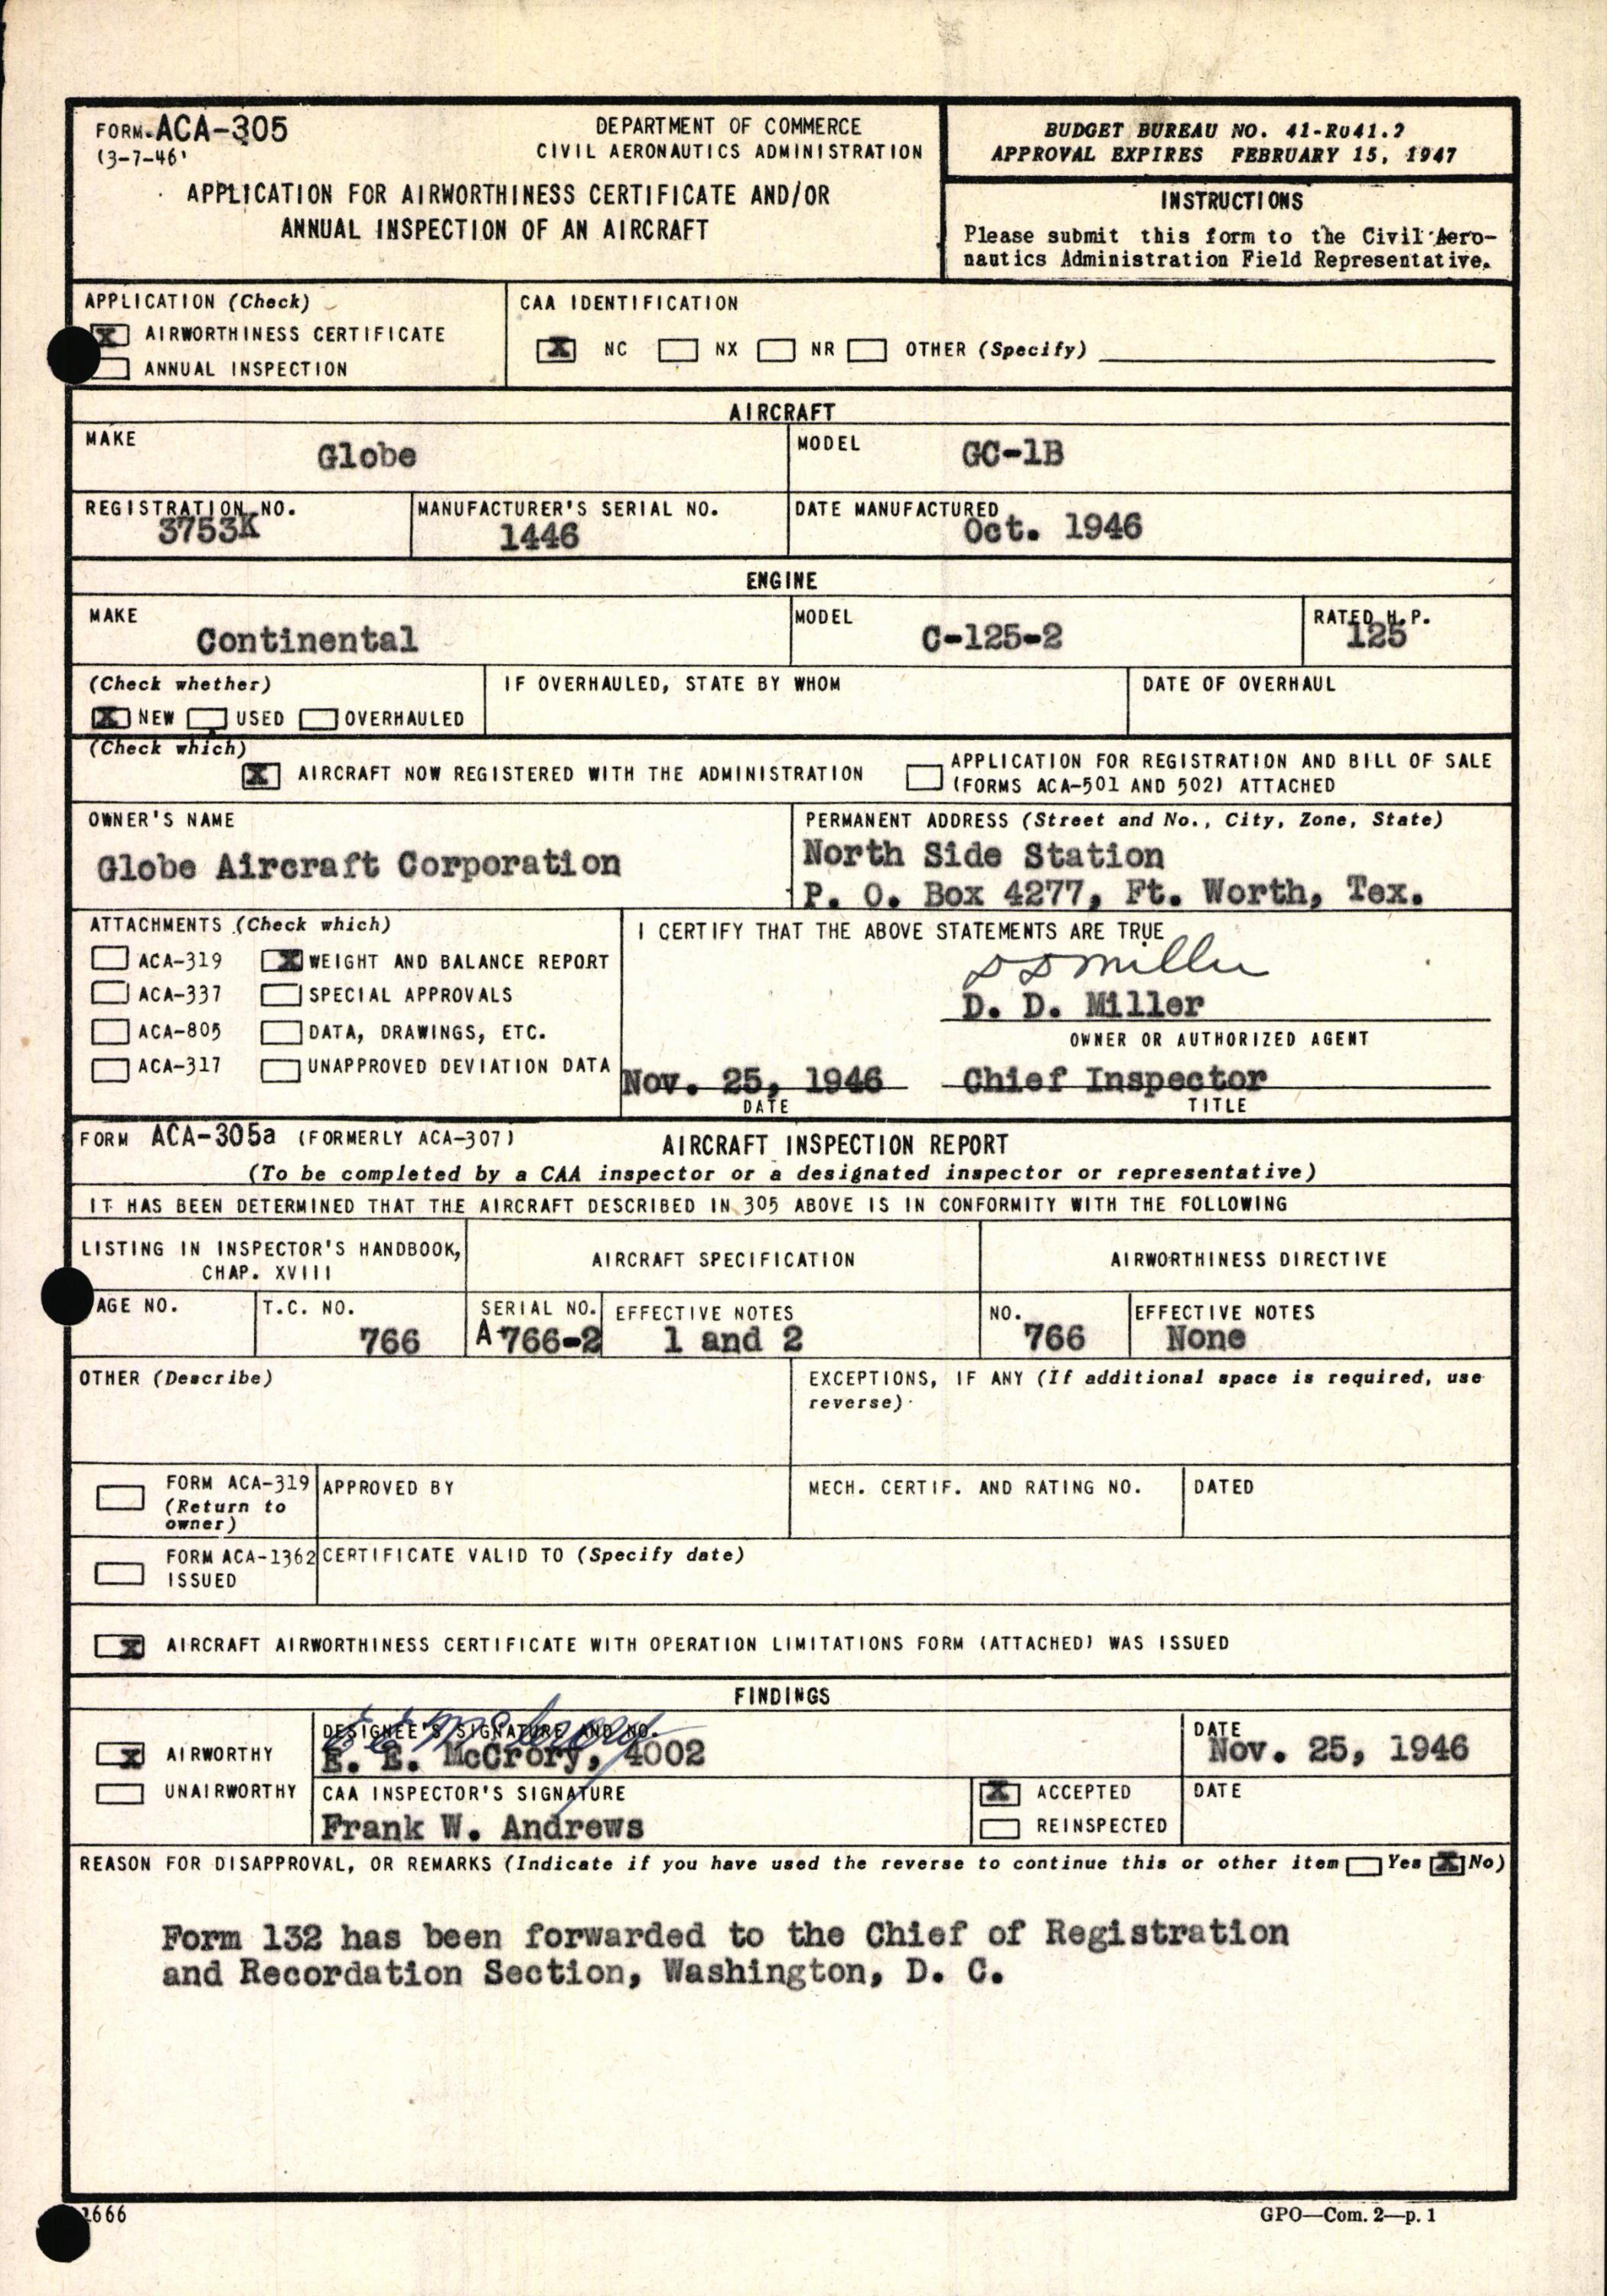 FORM ACA-305
(3-7-46)
DEPARTMENT OF COMMERCE
CIVIL AERONAUTICS ADMINISTRATION
APPLICATION FOR AIRWORTHINESS CERTIFICATE AND/OR
ANNUAL INSPECTION OF AN AIRCRAFT
BUDGET BUREAU NO. 41-R041.2
APPROVAL EXPIRES FEBRUARY 15, 1947
INSTRUCTIONS
Please submit this form to the Civil Aero-
nautics Administration Field Representative.
APPLICATION (Check)
X AIRWORTHINESS CERTIFICATE
ANNUAL INSPECTION
CAA IDENTIFICATION
X NC NX NR OTHER (Specify)
AIRCRAFT
MAKE
Globe
MODEL
GC-1B
REGISTRATION NO.
3753K
MANUFACTURER'S SERIAL NO.
1446
DATE MANUFACTURED
Oct. 1946
ENGINE
MAKE
Continental
MODEL
C-125-2
RATED H.P.
125
(Check whether)
X NEW USED OVERHAULED
IF OVERHAULED, STATE BY WHOM
DATE OF OVERHAUL
(Check which)
X AIRCRAFT NOW REGISTERED WITH THE ADMINISTRATION
APPLICATION FOR REGISTRATION AND BILL OF SALE
(FORMS ACA-501 AND 502) ATTACHED
OWNER'S NAME
Globe Aircraft Corporation
PERMANENT ADDRESS (Street and No., City, Zone, State)
North Side Station
P. O. Box 4277, Ft. Worth, Tex.
ATTACHMENTS (Check which)
ACA-319 X WEIGHT AND BALANCE REPORT
ACA-337 SPECIAL APPROVALS
ACA-805 DATA, DRAWINGS, ETC.
ACA-317 UNAPPROVED DEVIATION DATA
I CERTIFY THAT THE ABOVE STATEMENTS ARE TRUE
DDMiller
D. D. Miller
OWNER OR AUTHORIZED AGENT
Nov. 25, 1946 Chief Inspector
DATE TITLE
FORM ACA-305a (FORMERLY ACA-307) AIRCRAFT INSPECTION REPORT
(To be completed by a CAA inspector or a designated inspector or representative)
IT HAS BEEN DETERMINED THAT THE AIRCRAFT DESCRIBED IN 305 ABOVE IS IN CONFORMITY WITH THE FOLLOWING
LISTING IN INSPECTOR'S HANDBOOK,
CHAP. XVIII
AIRCRAFT SPECIFICATION
AIRWORTHINESS DIRECTIVE
AGE NO.
T.C. NO.
766
SERIAL NO.
A-766-2
EFFECTIVE NOTES
1 and 2
NO.
766
EFFECTIVE NOTES
None
OTHER (Describe)
EXCEPTIONS, IF ANY (If additional space is required, use
reverse)
FORM ACA-319
(Return to
owner)
APPROVED BY
MECH. CERTIF. AND RATING NO.
DATED
FORM ACA-1362
ISSUED
CERTIFICATE VALID TO (Specify date)
X AIRCRAFT AIRWORTHINESS CERTIFICATE WITH OPERATION LIMITATIONS FORM (ATTACHED) WAS ISSUED
FINDINGS
X AIRWORTHY
UNAIRWORTHY
DESIGNEE'S SIGNATURE AND NO.
E E McCrory
E. E. McCrory, 4002
DATE
Nov. 25, 1946
CAA INSPECTOR'S SIGNATURE
Frank W. Andrews
X ACCEPTED
REINSPECTED
DATE
REASON FOR DISAPPROVAL, OR REMARKS (Indicate if you have used the reverse to continue this or other item Yes X No)
Form 132 has been forwarded to the Chief of Registration
and Recordation Section, Washington, D. C.
1666
GPO—Com. 2—p. 1